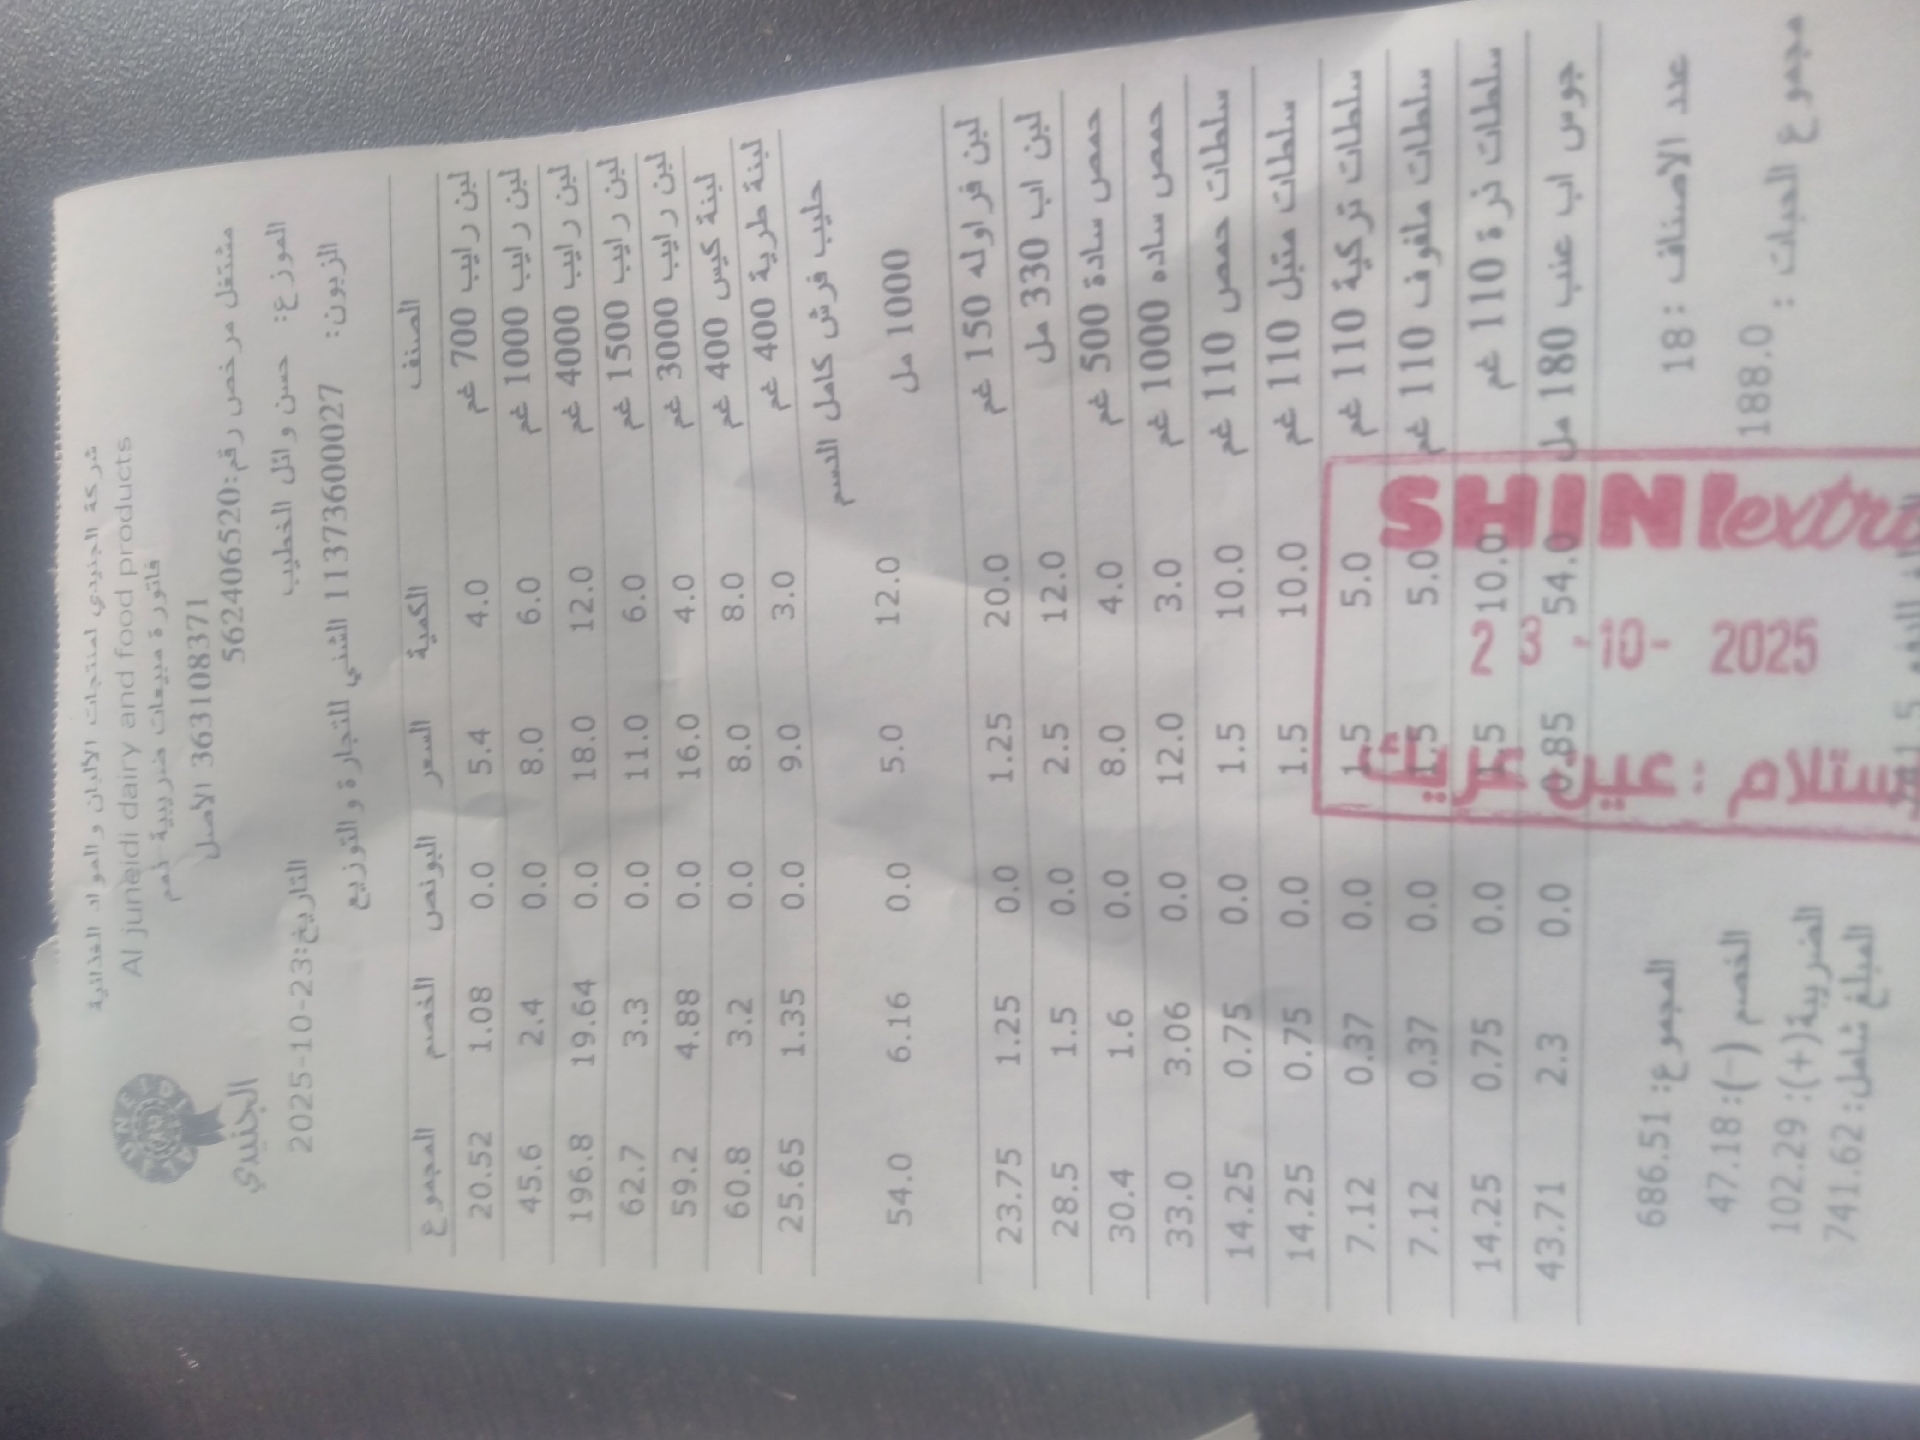 شركة الجنيدي لمنتجات الالبان والمواد الغذائية
Al juneidi dairy and food products
فاتورة مبيعات ضريبية ذمم
363108371 الأصل
مشتغل مرخص رقم:562406520
الجنيدي
الموزع: حسن وائل الخطيب
التاريخ:2025-10-23
الزبون: 11373600027 الشني للتجارة والتوزيع
الصنف الكمية السعر البونص الخصم المجموع
لبن رايب 700 غم 4.0 5.4 0.0 1.08 20.52
لبن رايب 1000 غم 6.0 8.0 0.0 2.4 45.6
لبن رايب 4000 غم 12.0 18.0 0.0 19.64 196.8
لبن رايب 1500 غم 6.0 11.0 0.0 3.3 62.7
لبن رايب 3000 غم 4.0 16.0 0.0 4.88 59.2
لبنة كيس 400 غم 8.0 8.0 0.0 3.2 60.8
لبنة طرية 400 غم 3.0 9.0 0.0 1.35 25.65
حليب فرش كامل الدسم
1000 مل 12.0 5.0 0.0 6.16 54.0
لبن فراوله 150 غم 20.0 1.25 0.0 1.25 23.75
لبن اب 330 مل 12.0 2.5 0.0 1.5 28.5
حمص سادة 500 غم 4.0 8.0 0.0 1.6 30.4
حمص ساده 1000 غم 3.0 12.0 0.0 3.06 33.0
سلطات حمص 110 غم 10.0 1.5 0.0 0.75 14.25
سلطات متبل 110 غم 10.0 1.5 0.0 0.75 14.25
سلطات تركية 110 غم 5.0 1.5 0.0 0.37 7.12
سلطات ملفوف 110 غم 5.0 1.5 0.0 0.37 7.12
سلطات ذرة 110 غم 10.0 1.5 0.0 0.75 14.25
جوس اب عنب 180 مل 54.0 0.85 0.0 2.3 43.71
عدد الاصناف : 18
المجموع: 686.51
مجموع الحبات : 188.0
الخصم (-): 47.18
الضريبة(+): 102.29
المبلغ شامل: 741.62
SHINI extra
23 -10- 2025
ستلام : عين عريك